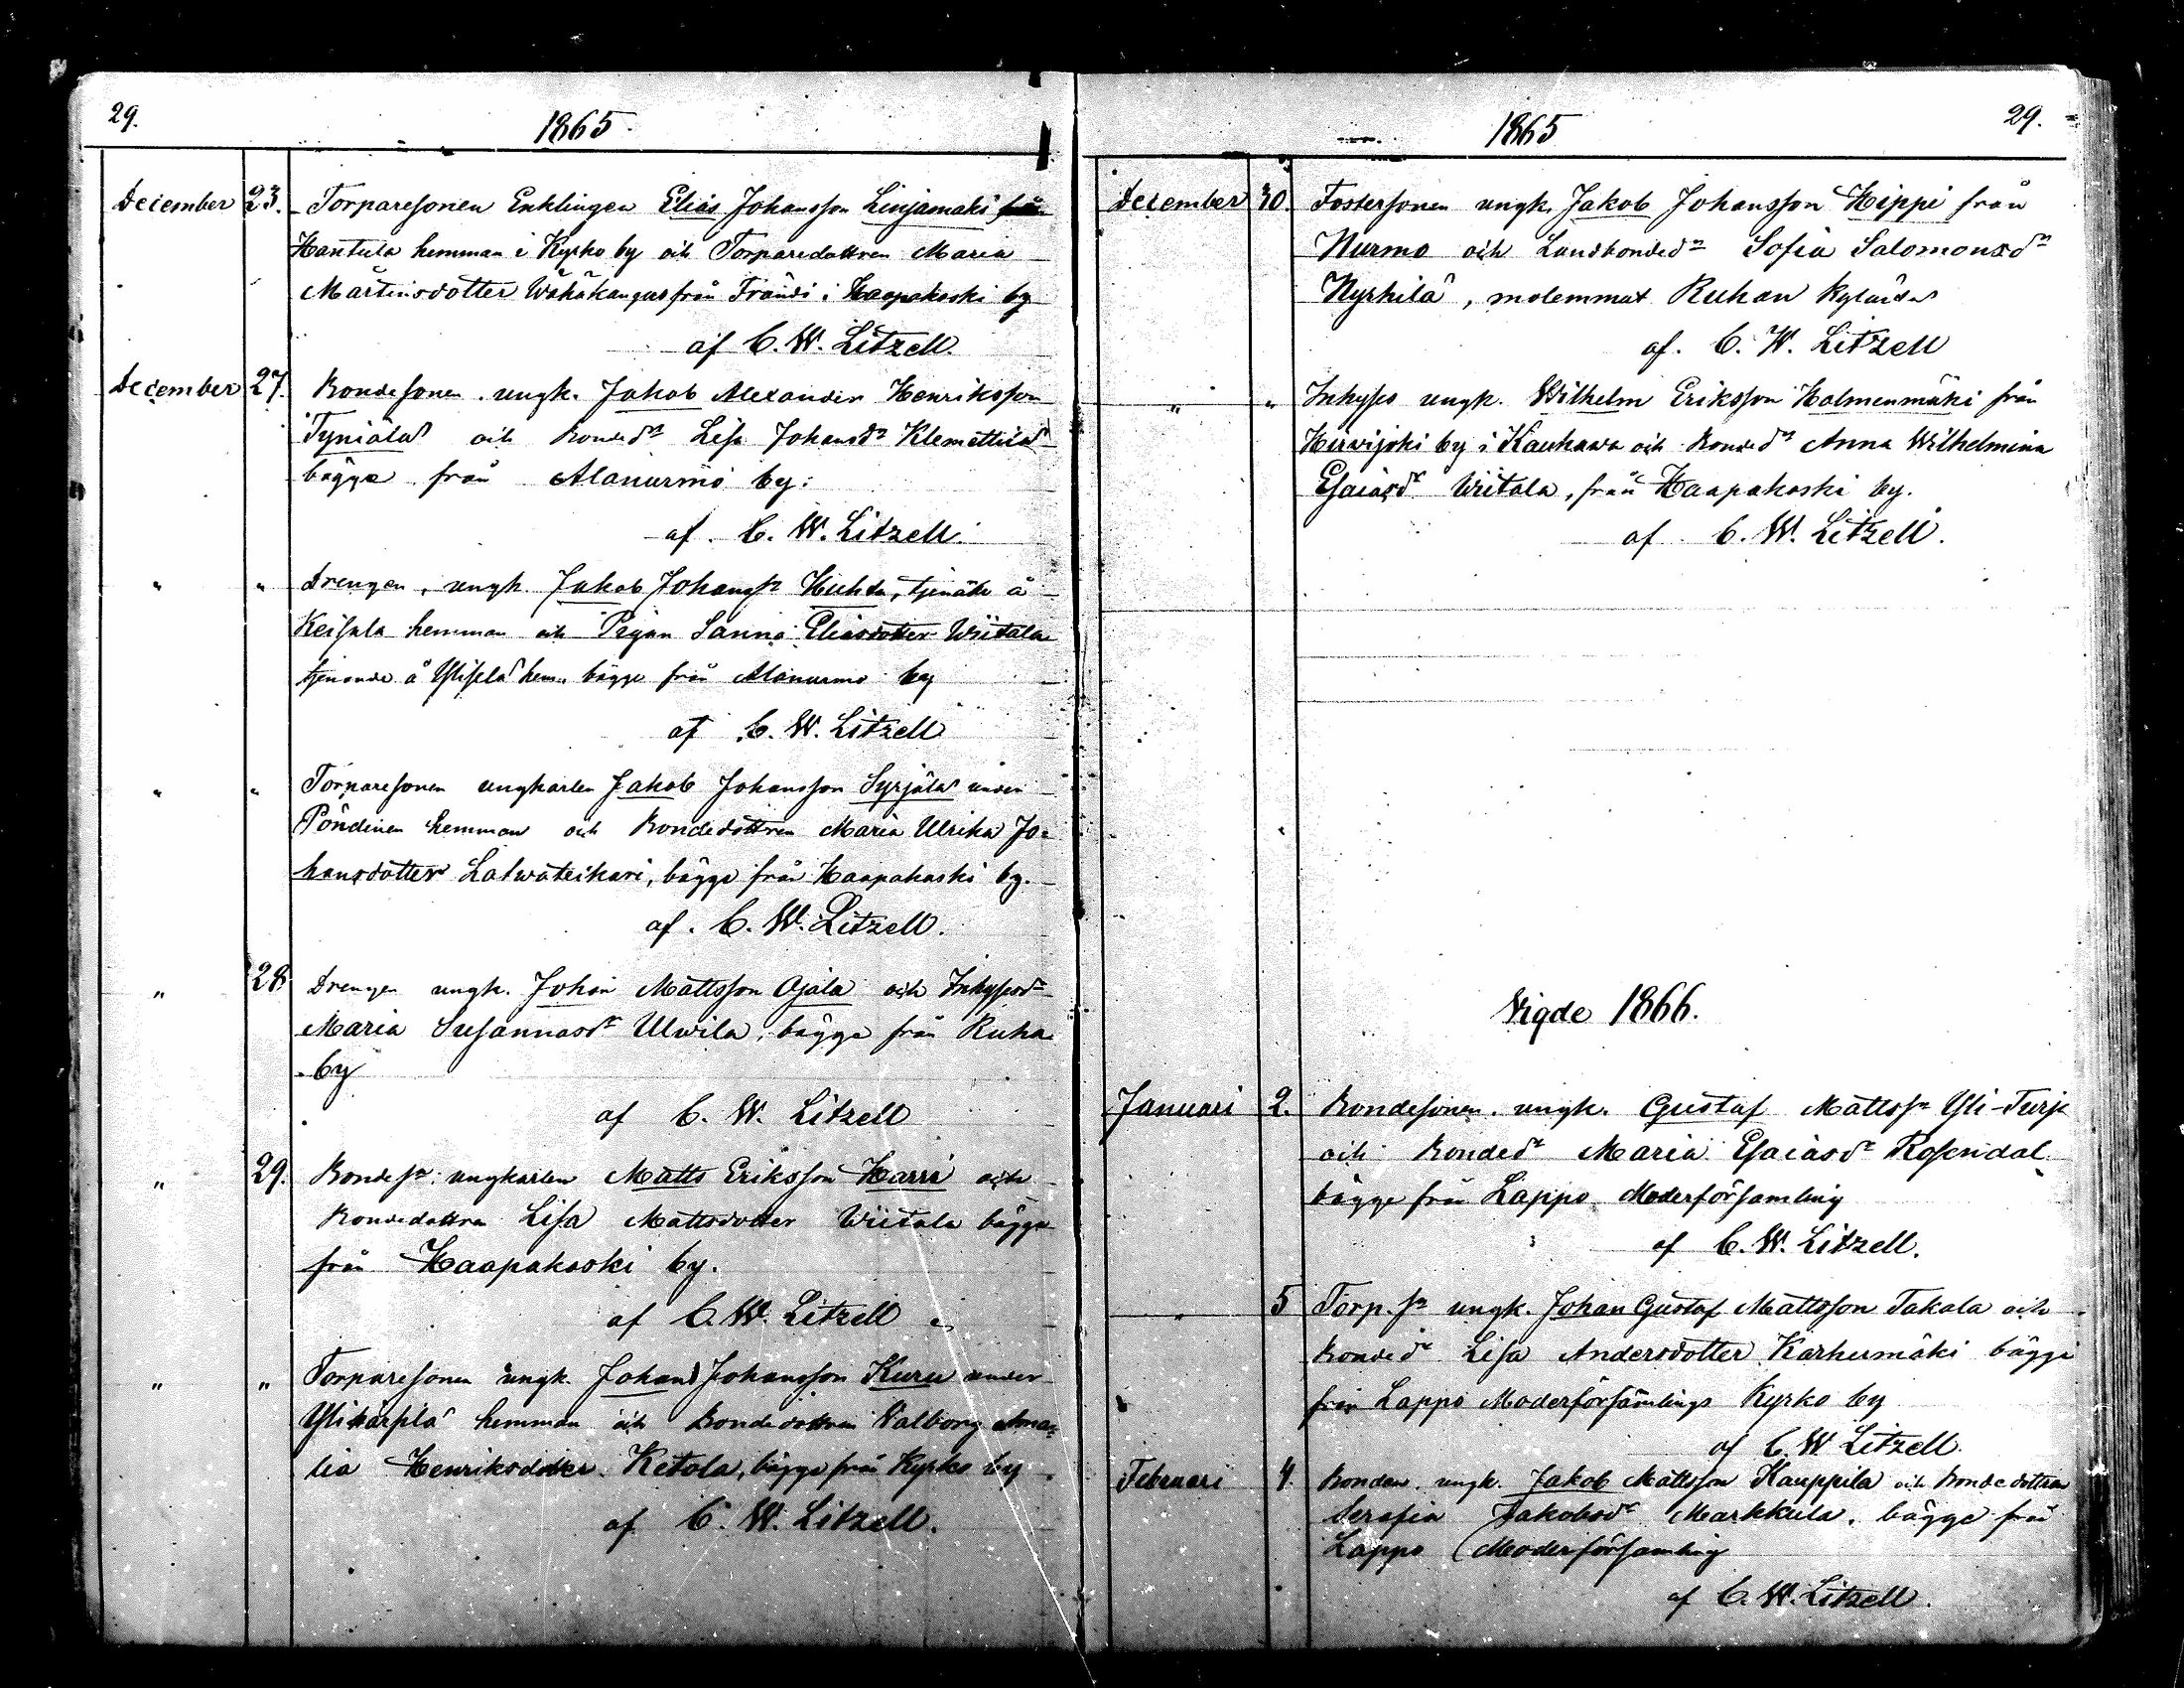 29.
1865
December 23. Torparesonen Enklingen Elias Johansson Linjamäki från
Hantula hemman i Kyrko by och Torparedottren Maria
Mårtensdotter Wähäkangas från Frändi i Haapakoski by
af C. W. Litzell.
December 27. Bondesonen ungk. Jakob Alexander Henriksson
Tyniälä och Bonded:r Lisa Johansd:r Klemettilä
bägge från Alanurmo by:
af C. W. Litzell.
" " Drengen, ungk. Jakob Johanss:n Huhta, tjenande å
Keisala hemman och Pigan Sanna Eliasdotter Wiitala
tjenande å Ylisela hem: bägge från Alanurmo by
af C. W. Litzell
" " Torparesonen ungkarlen Jakob Johansson Syrjälä under
Pöndinen hemman och Bondedottren Maria Ulrika Jo=
hansdotter Latwateikari, bägge från Haapakoski by.
af. C. W. Litzell.
" 28. Drengen ungk. Johan Mattsson Ojala och Inhysesd:r
Maria Susannasd:r Ulwila, bägge från Ruha
by
af C. W. Litzell
" 29. Bondes:n ungkarlen Matts Eriksson Harri och
Bondedottren Lisa Mattsdotter Wiitala bägge
från Haapakoski by.
af C. W. Litzell
" " Torparesonen ungk. Johan Johansson Kuru under
Ylikärplä hemman och Bondedottren Walborg Ama=
lia Henriksdotter Ketola, bägge från Kyrko by
af C. W. Litzell.
1865
29.
December 30. Fostersonen ungk. Jakob Johansson Hippi från
Nurmo och Landbonded:r Sofia Salomonsd:r
Nyrhilä, molemmat Ruhan kylästä
af. C. W. Litzell
" " Inhyses ungk. Wilhelm Eriksson Holmenmäki från
Hirwijoki by i Kauhawa och Bonded:r Anna Wilhelmina
Esaiasd:r Wiitala, från Haapakoski by.
af C. W. Litzell.
Vigde 1866.
Januari 2. Bondesonen ungk. Gustaf Mattss:n Yli-Turja
och Bonded:r Maria Esaiasd:r Rosendal
bägge från Lappo Moderförsamling
af C. W. Litzell.
" 5 Torp. s:n ungk. Johan Gustaf Mattsson Takala och
Bonded:r Lisa Andersdotter Karhumäki bägge
från Lappo Moderförsamlings Kyrko by
af C. W. Litzell.
Februari 4. Bonden ungk. Jakob Mattsson Kauppila och Bondedottren
Serafia Jakobsd:r Markkula, bägge från
Lappo Moderförsamling
af C. W. Litzell.